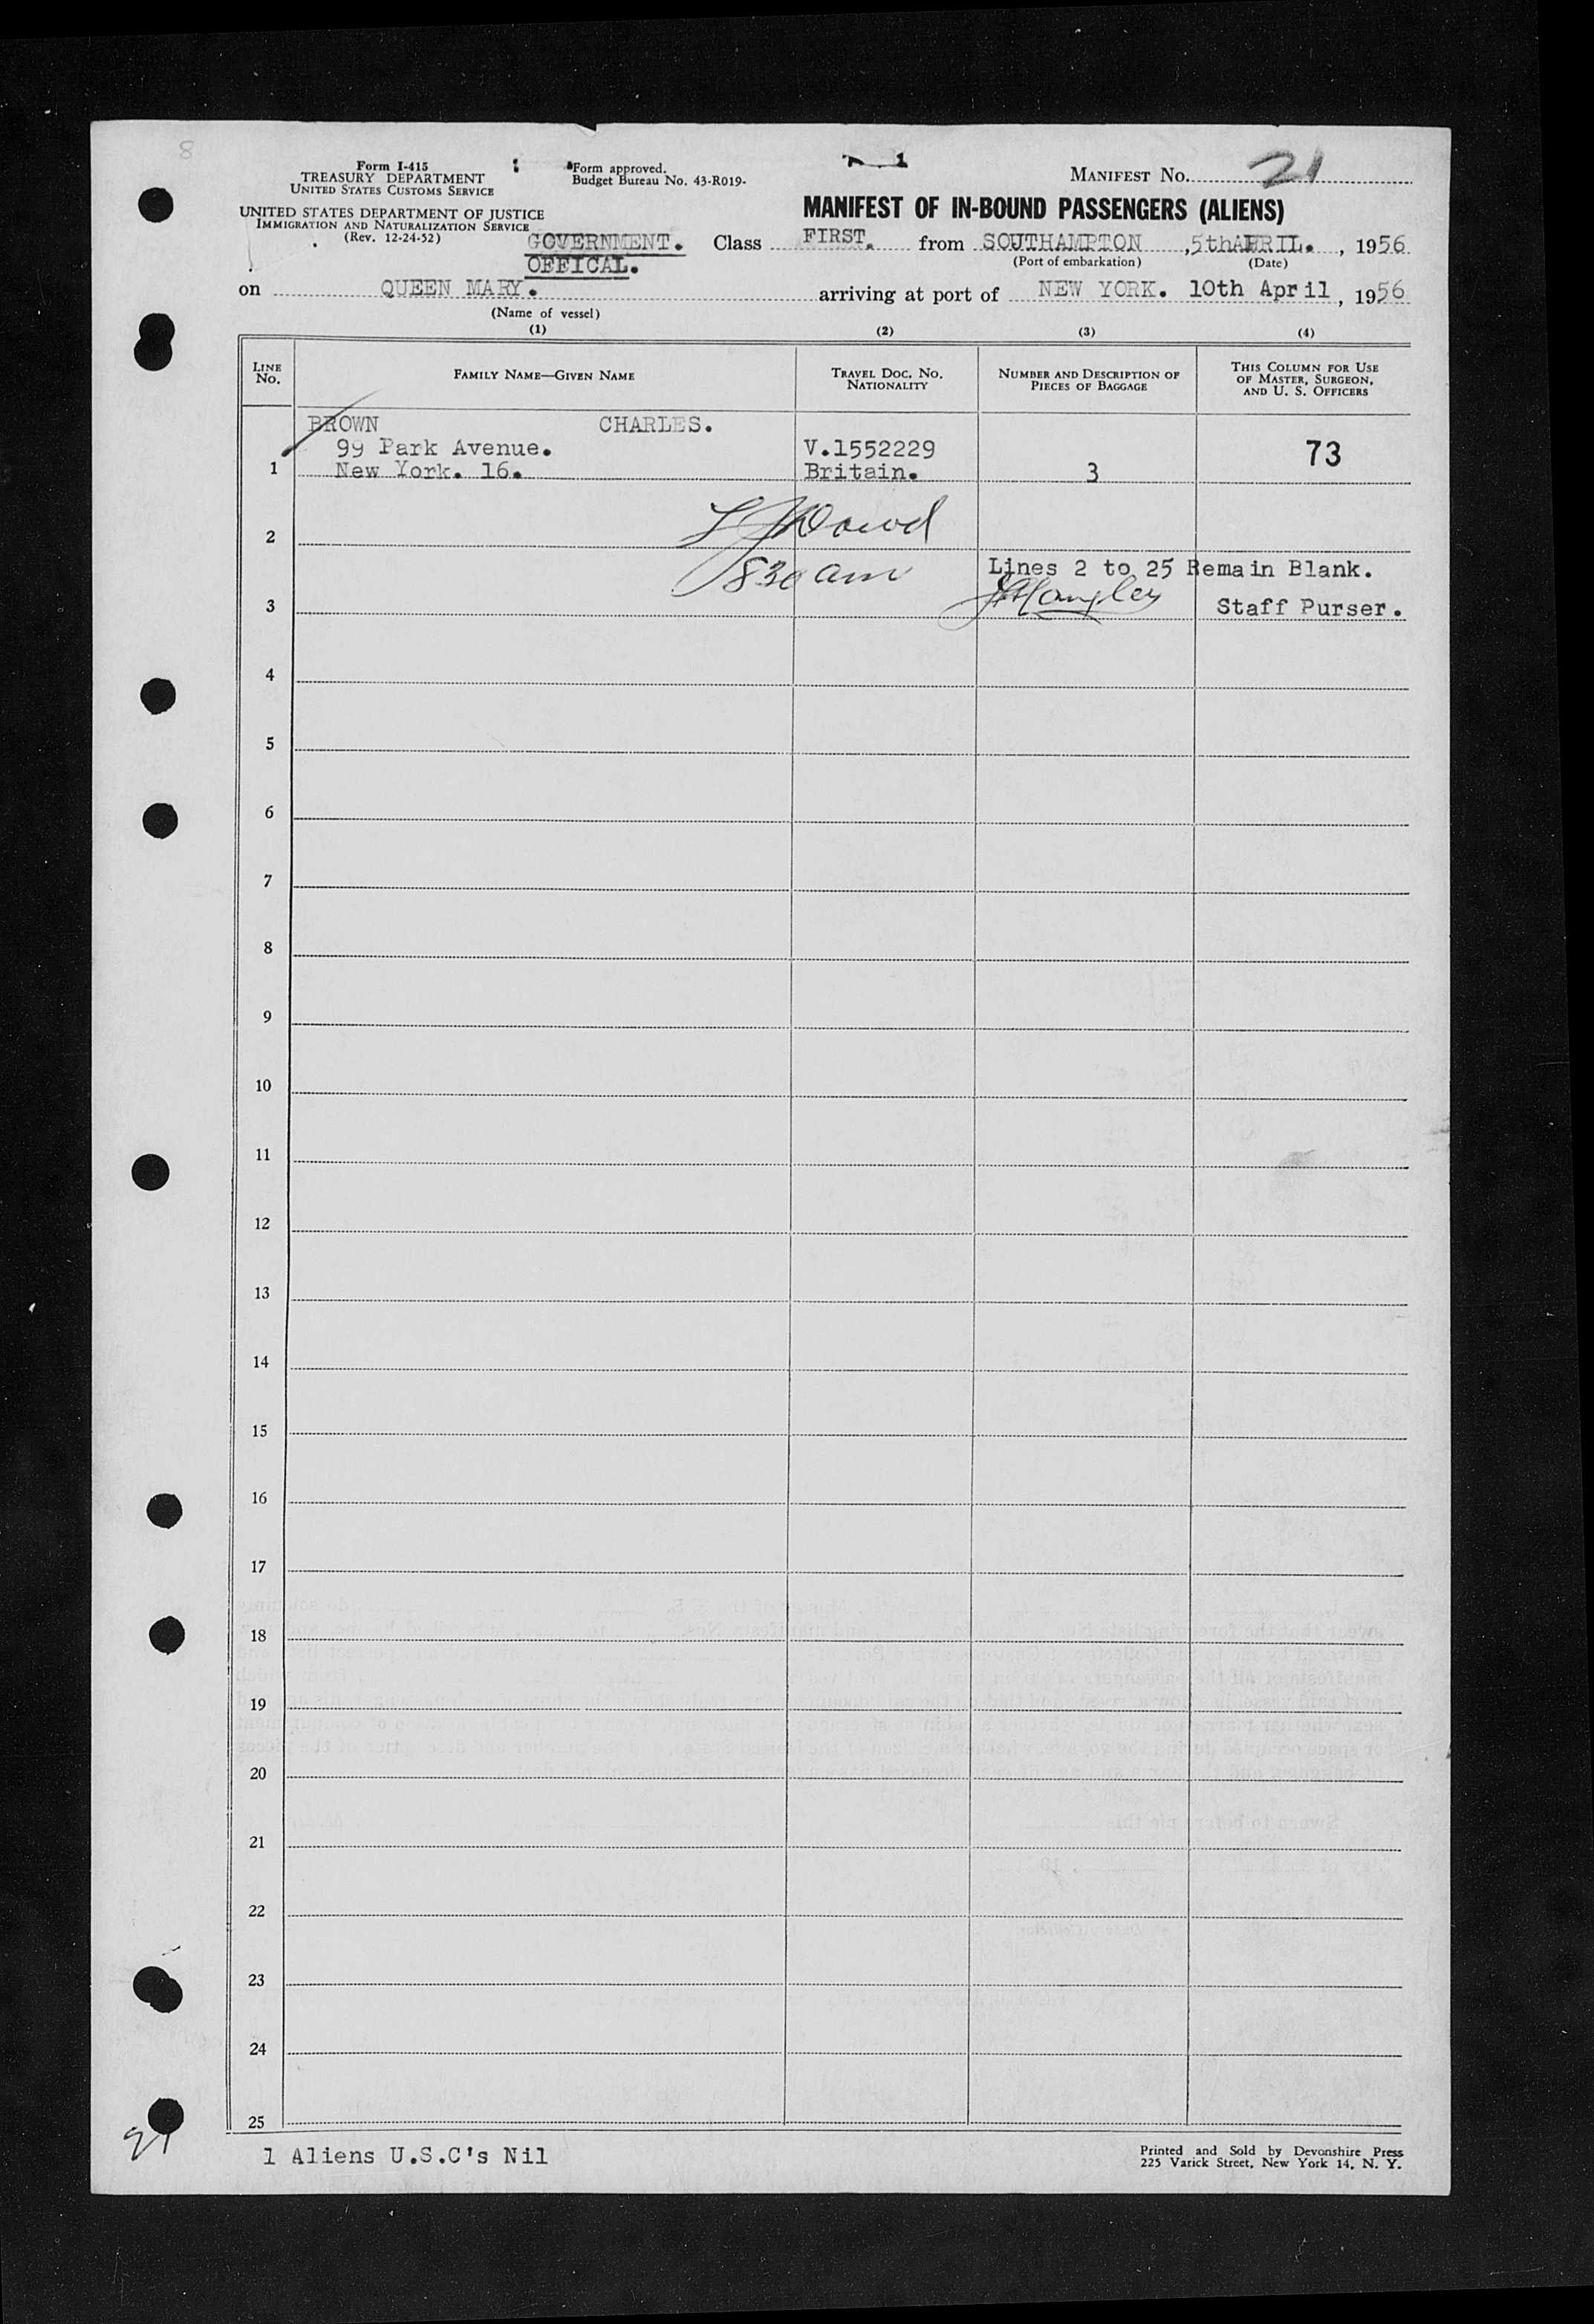 8
Form I-415
TREASURY DEPARTMENT
UNITED STATES CUSTOMS SERVICE
Form approved.
Budget Bureau No. 43-R019-
MANIFEST No. 21
UNITED STATES DEPARTMENT OF JUSTICE
IMMIGRATION AND NATURALIZATION SERVICE
(Rev. 12-24-52)
MANIFEST OF IN-BOUND PASSENGERS (ALIENS)
GOVERNMENT.
OFFICAL.
Class FIRST. from SOUTHAMPTON ,5thAPRIL. , 1956
(Port of embarkation) (Date)
on QUEEN MARY. arriving at port of NEW YORK. 10th April , 1956
(Name of vessel)
(1) (2) (3) (4)
LINE No. FAMILY NAME—GIVEN NAME TRAVEL DOC. NO. NATIONALITY NUMBER AND DESCRIPTION OF PIECES OF BAGGAGE THIS COLUMN FOR USE OF MASTER, SURGEON, AND U. S. OFFICERS
BROWN CHARLES.
99 Park Avenue. V.1552229 73
1 New York. 16. Britain. 3
2
830 am Lines 2 to 25 Remain Blank.
3 Staff Purser.
4
5
6
7
8
9
10
11
12
13
14
15
16
17
18
19
20
21
22
23
24
25
21
1 Aliens U.S.C's Nil
Printed and Sold by Devonshire Press
225 Varick Street, New York 14, N. Y.